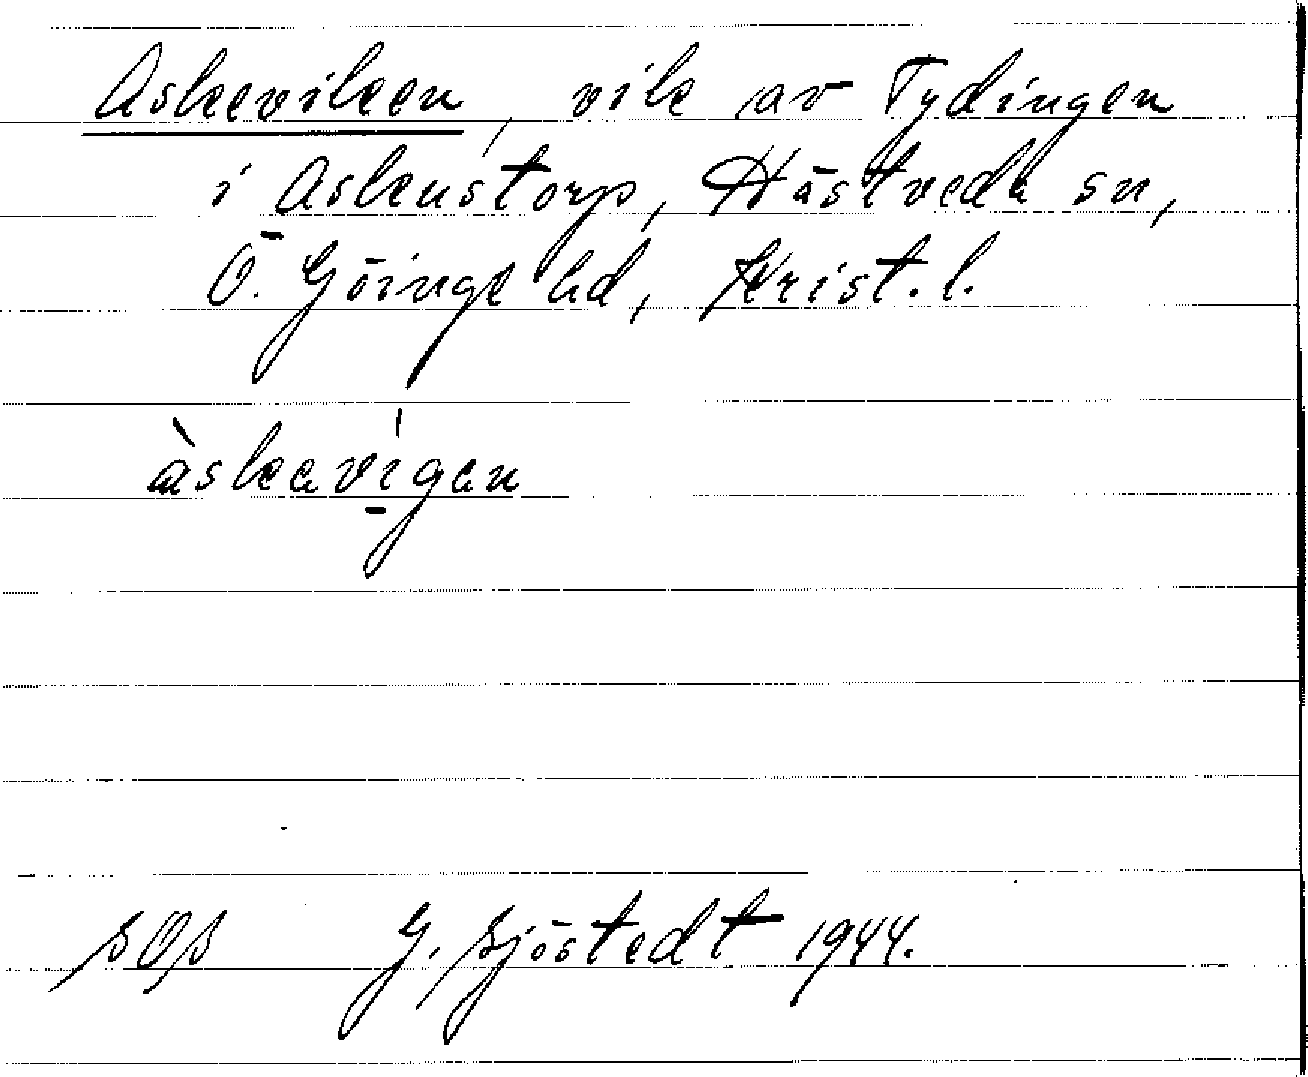 Askeviken, vik av Tydingen
i Askenstorp, Hästveda sn,
Ö. Göinge hd, Krist. l.
àskaví̱gan
SOS G. Sjöstedt 1944.